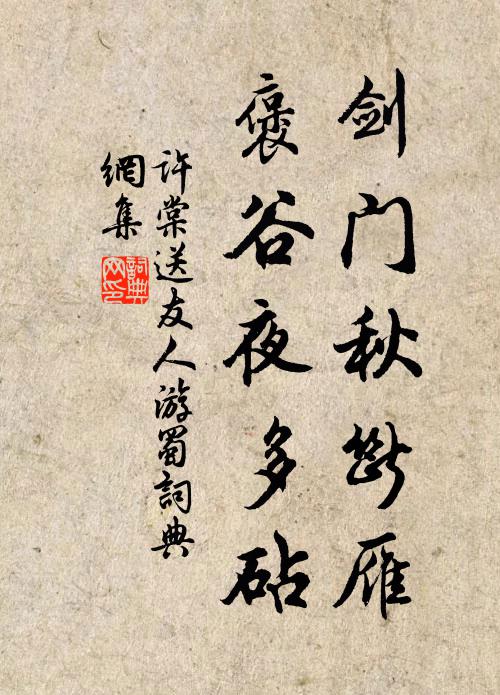 剑门秋断雁
褒谷夜多砧
许棠送友人游蜀詞典
網集
詞典網印